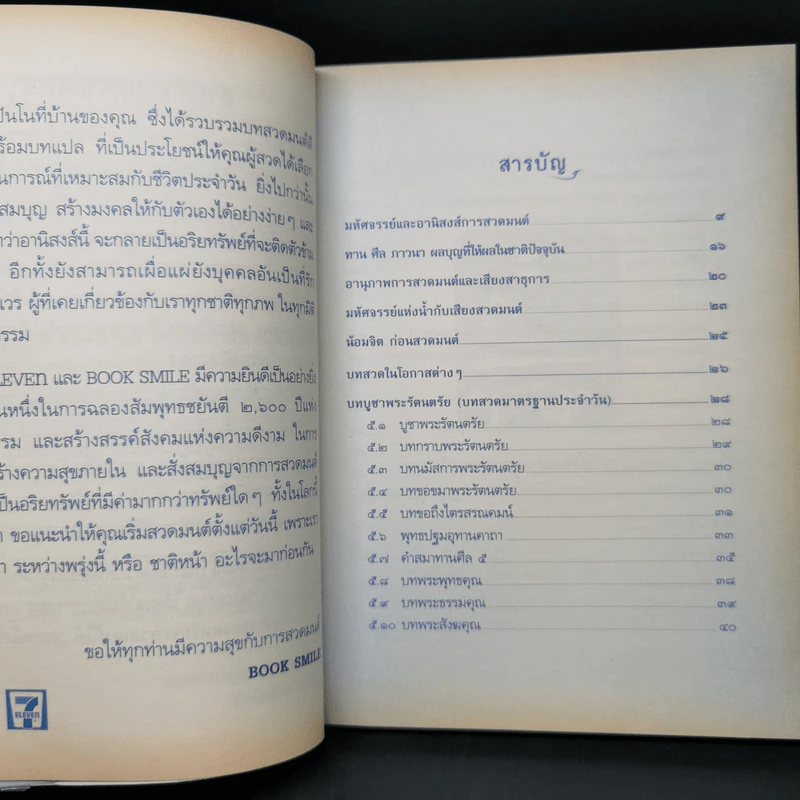 ป็นโนที่บ้านของคุณ ซึ่งได้รวบรวมบทสวดมนต์ดี
ร้อมบทแปล ที่เป็นประโยชน์ให้คุณผู้สวดได้เลือก
นการณ์ที่เหมาะสมกับชีวิตประจำวัน ยิ่งไปกว่านั้น
สมบุญ สร้างมงคลให้กับตัวเองได้อย่างง่ายๆ และ
ว่าอานิสงส์นี้ จะกลายเป็นอริยทรัพย์ที่จะติดตัวข้าม
อีกทั้งยังสามารถเผื่อแผ่ยังบุคคลอันเป็นที่รัก
เวร ผู้ที่เคยเกี่ยวข้องกับเราทุกชาติทุกภพ ในทุกมิติ
รรม
LEVEn และ BOOK SMILE มีความยินดีเป็นอย่างยิ่ง
นหนึ่งในการฉลองสัมพุทธชยันตี ๒,๖๐๐ ปีแห่ง
รรม และสร้างสรรค์สังคมแห่งความดีงาม ในการ
ร้างความสุขภายใน และสั่งสมบุญจากการสวดมนต์
ป็นอริยทรัพย์ที่มีค่ามากกว่าทรัพย์ใดๆ ทั้งในโลกนี้
ขอแนะนำให้คุณเริ่มสวดมนต์ตั้งแต่วันนี้ เพราะเรา
า ระหว่างพรุ่งนี้ หรือ ชาติหน้า อะไรจะมาก่อนกัน
ขอให้ทุกท่านมีความสุขกับการสวดมนต์
BOOK SMILE
7 ELEVEn
สารบัญ
มหัศจรรย์และอานิสงส์การสวดมนต์ ๙
ทาน ศีล ภาวนา ผลบุญที่ให้ผลในชาติปัจจุบัน ๑๖
อานุภาพการสวดมนต์และเสียงสาธุการ ๒๐
มหัศจรรย์แห่งน้ำกับเสียงสวดมนต์ ๒๓
น้อมจิต ก่อนสวดมนต์ ๒๕
บทสวดในโอกาสต่างๆ ๒๖
บทบูชาพระรัตนตรัย (บทสวดมาตรฐานประจำวัน) ๒๘
๕.๑ บูชาพระรัตนตรัย ๒๘
๕.๒ บทกราบพระรัตนตรัย ๒๙
๕.๓ บทนมัสการพระรัตนตรัย ๓๐
๕.๔ บทขอขมาพระรัตนตรัย ๓๐
๕.๕ บทขอถึงไตรสรณคมน์ ๓๑
๕.๖ พุทธปฐมอุทานคาถา ๓๓
๕.๗ คำสมาทานศีล ๕ ๓๕
๕.๘ บทพระพุทธคุณ ๓๘
๕.๙ บทพระธรรมคุณ ๓๙
๕.๑๐ บทพระสังฆคุณ ๔๐